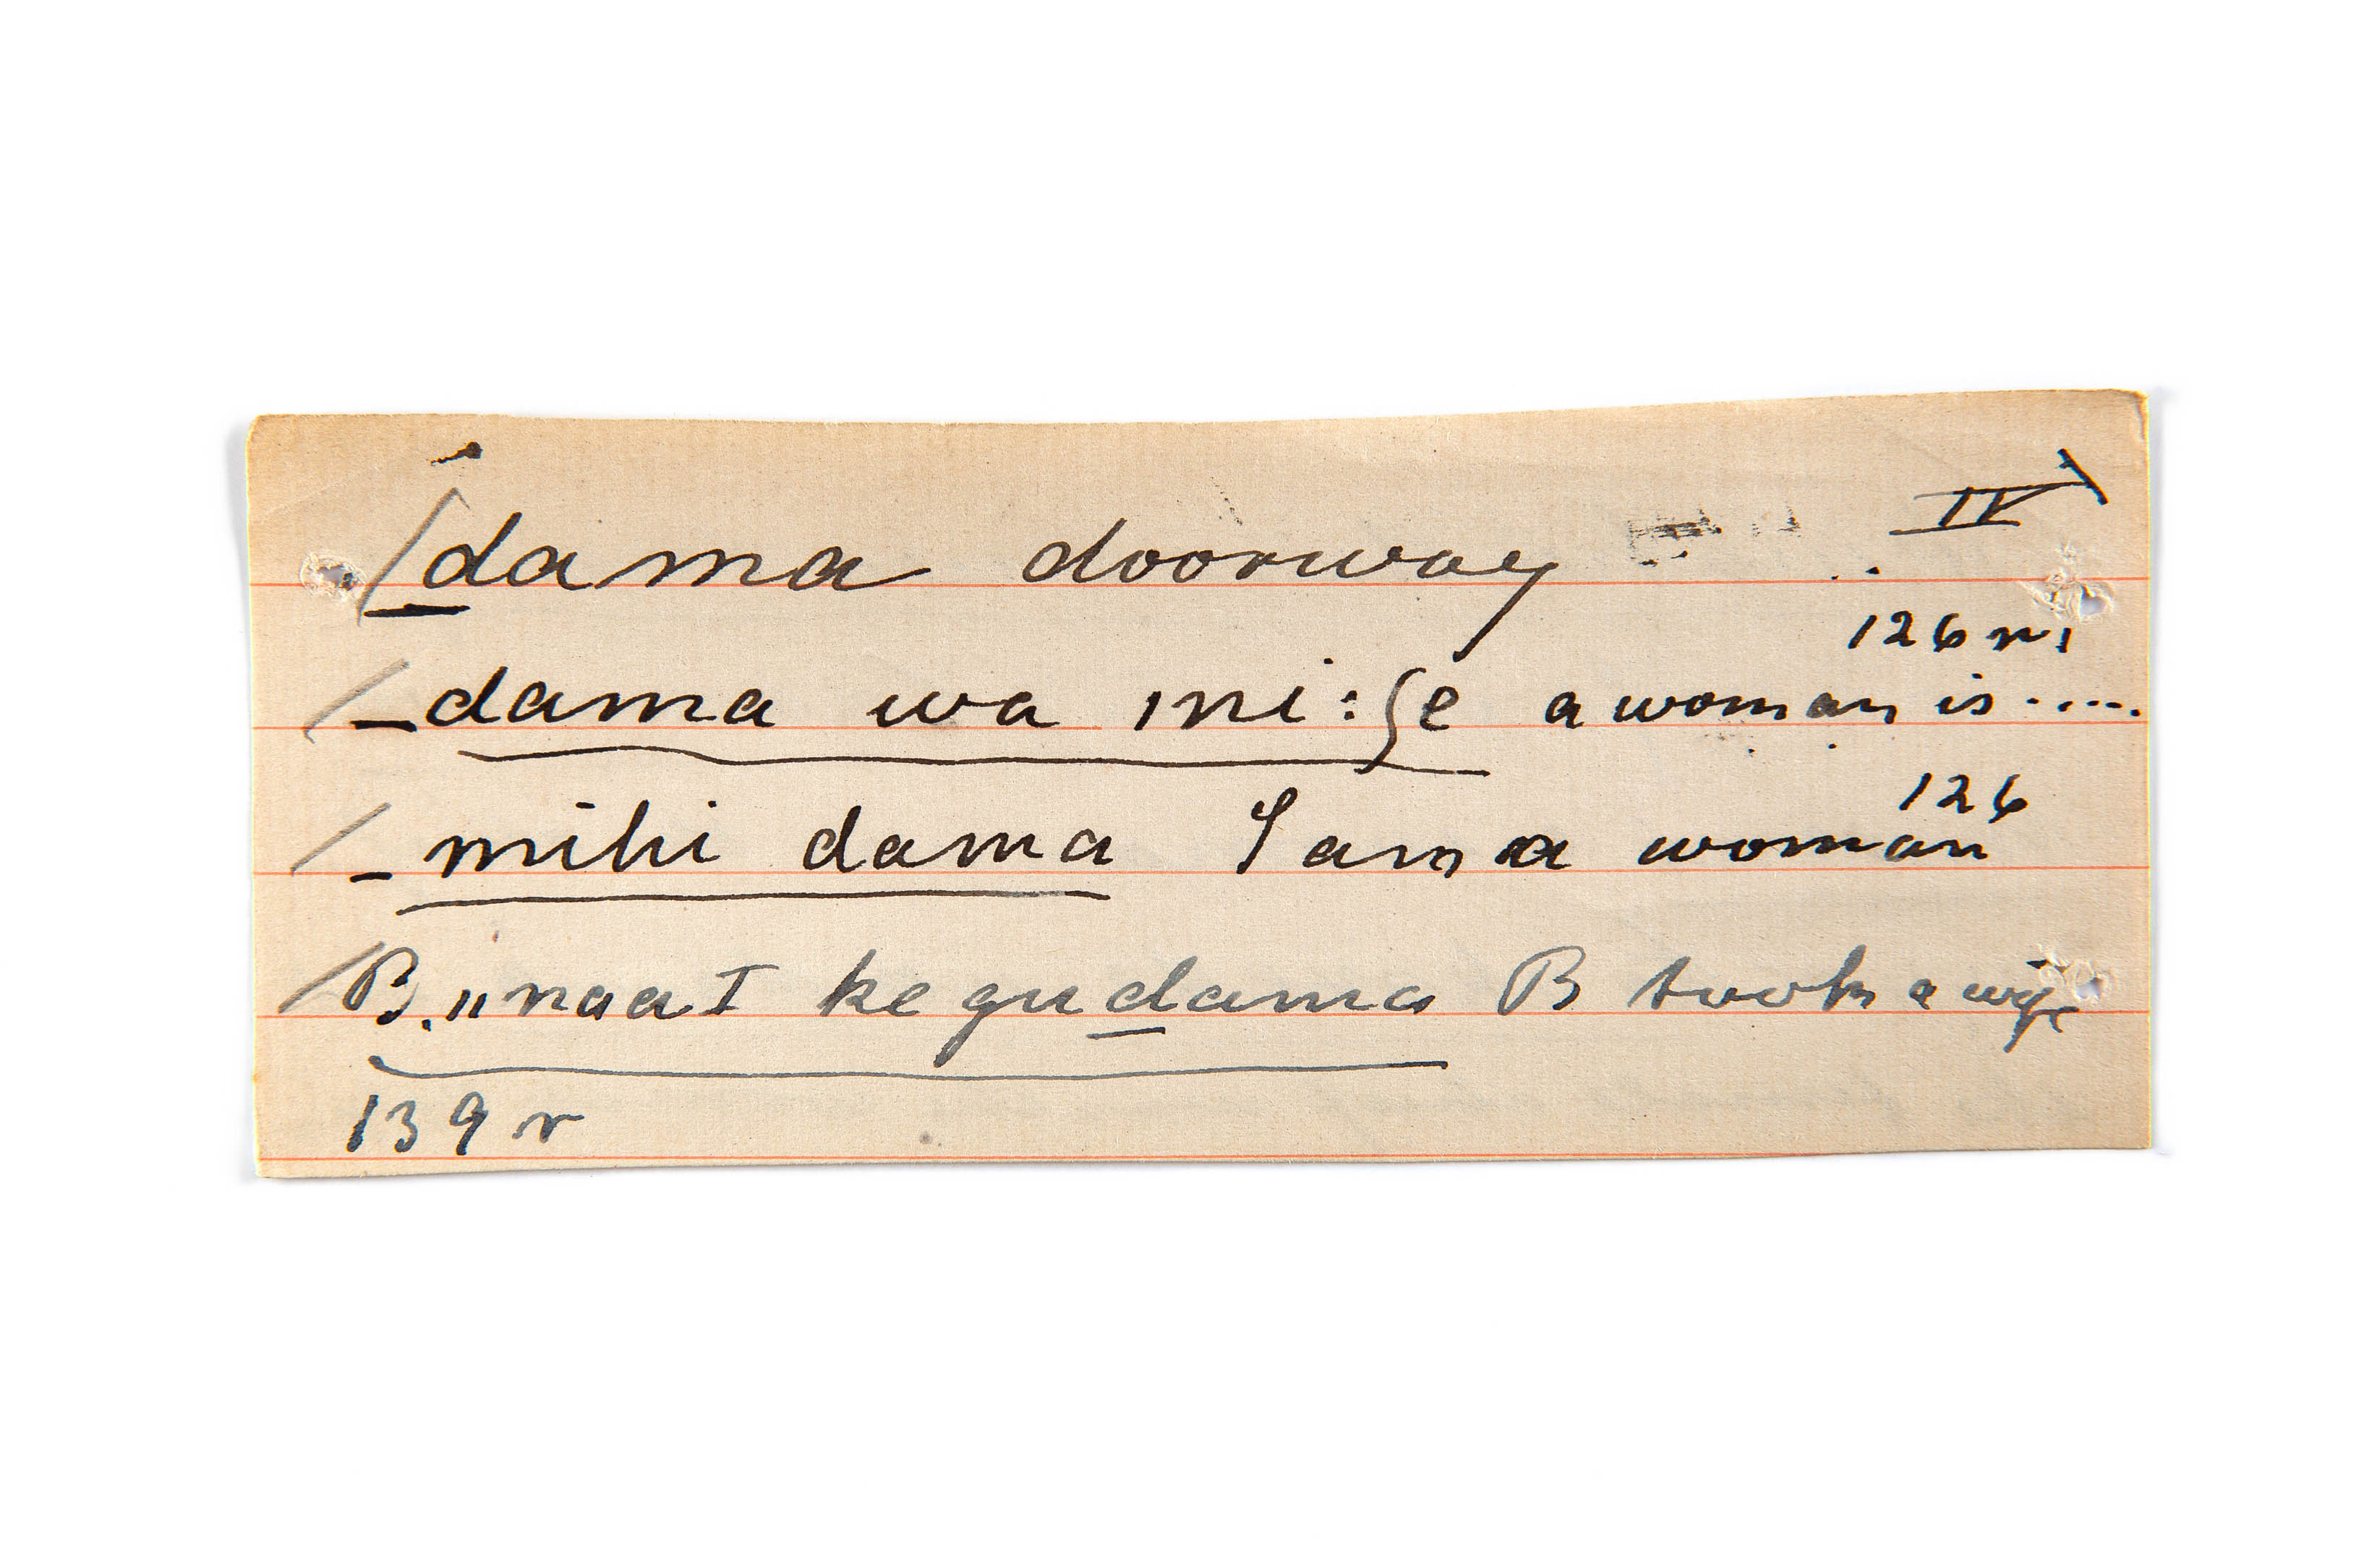 dama doorway IV
126 r.
dama wa ini:ʃe a woman is.....
126
mihi dama I am a woman
B. ıınaaI ke gudama B took a wife
139 r